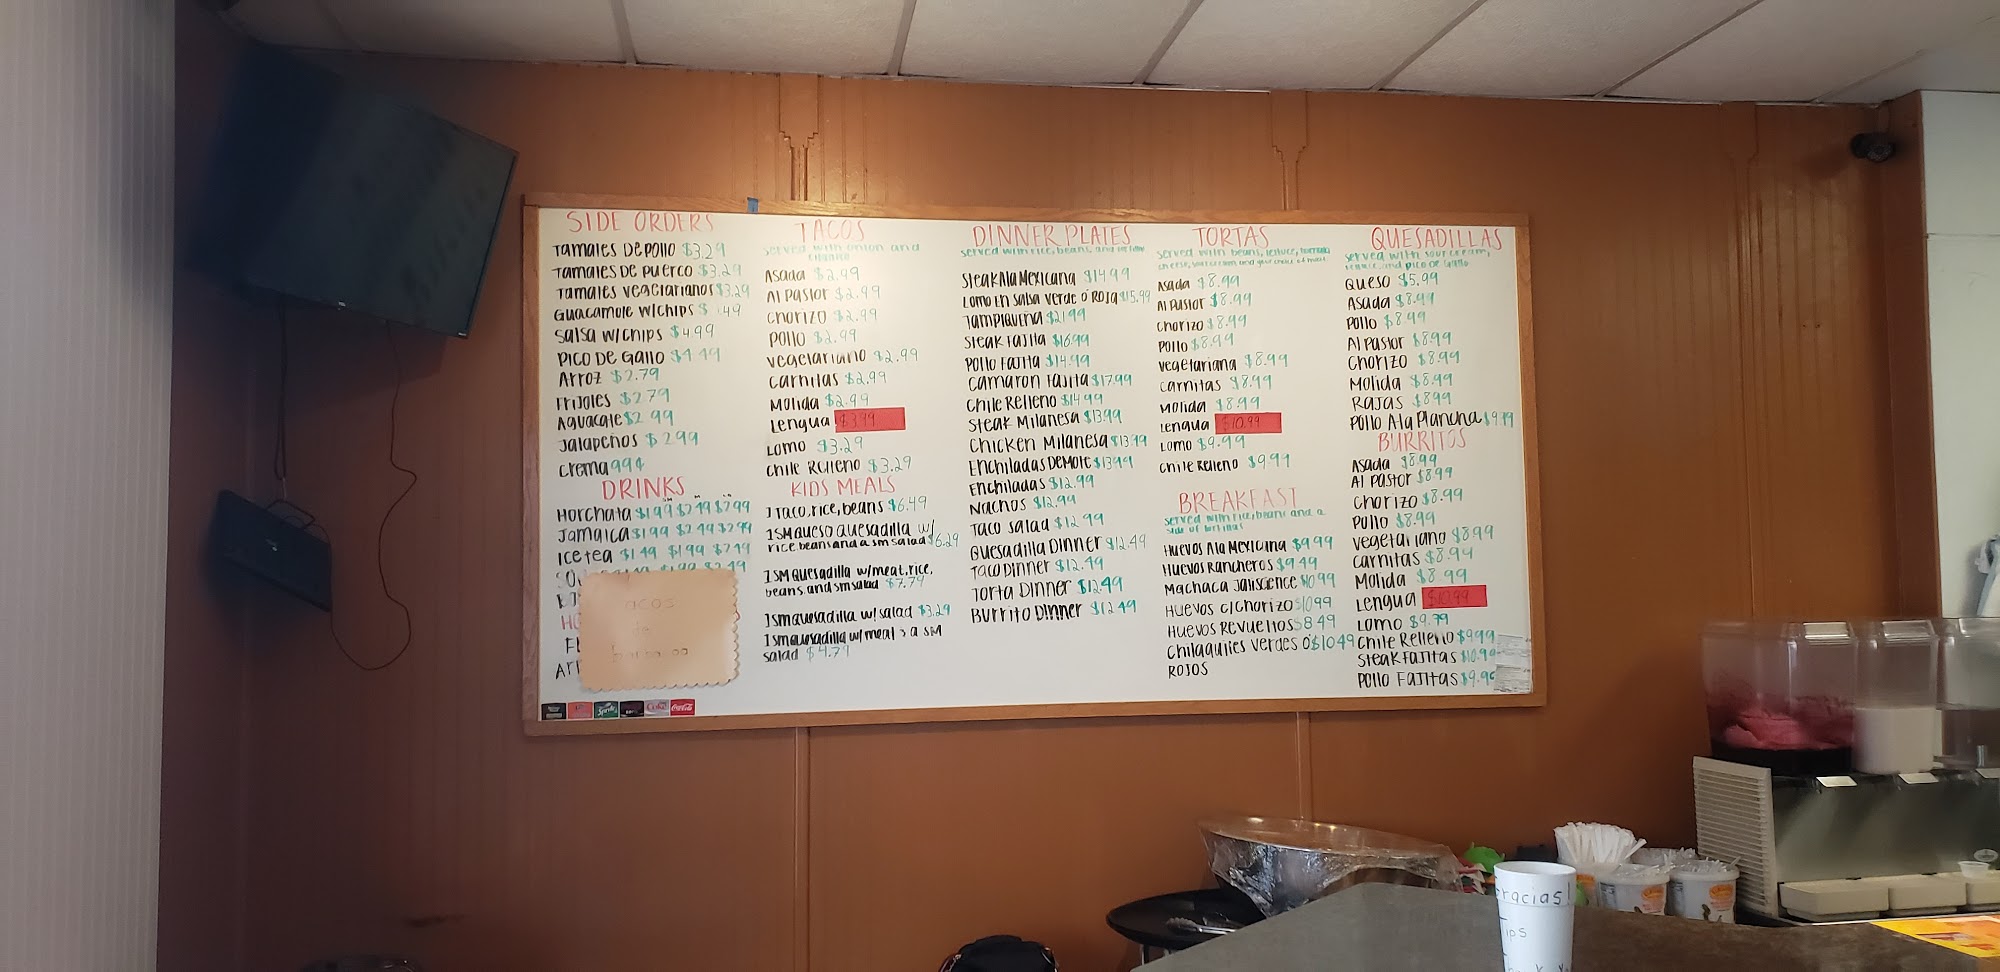 SIDE ORDERS
Tamales De Pollo $3.29
Tamales De Puerco $3.29
Tamales Vegetarianos $3.29
Guacamole w/chips $ .49
Salsa w/chips $4.99
Pico De Gallo $4.49
Arroz $2.79
Frijoles $2.79
Aguacate $2.99
Jalapeños $2.99
Crema 99¢
DRINKS
Horchata $1.99 $2.49 $2.99
Jamaica $1.99 $2.49 $2.99
Ice tea $1.49 $1.99 $2.49
Tacos
de
barbacoa
Sprite
Coke
Coca-Cola
TACOS
served with onion and
cilantro
Asada $2.99
Al Pastor $2.99
Chorizo $2.99
Pollo $2.99
Vegetariano $2.99
Carnitas $2.99
Molida $2.99
Lengua $3.99
Lomo $3.29
Chile Relleno $3.29
KIDS MEALS
1 Taco, rice, beans $6.49
1 SM queso quesadilla w/
rice beans and a sm salad $6.29
1 SM Quesadilla w/meat, rice,
beans, and sm salad $7.79
1 sm quesadilla w/ salad $3.29
1 sm quesadilla w/ meat & a SM
salad $4.79
DINNER PLATES
served with rice, beans, and tortillas
Steak Ala Mexicana $14.99
Lomo En Salsa Verde ó Roja $15.99
Tampiqueña $21.99
Steak Fajita $16.99
Pollo Fajita $14.99
Camaron Fajita $17.99
Chile Relleno $14.99
Steak Milanesa $13.99
Chicken Milanesa $13.99
Enchiladas De Mole $13.99
Enchiladas $12.99
Nachos $12.99
Taco Salad $12.99
Quesadilla Dinner $12.49
Taco Dinner $12.49
Torta Dinner $12.49
Burrito Dinner $12.49
TORTAS
served with beans, lettuce, tomato
cheese, sour cream and your choice of meat
Asada $8.99
Al Pastor $8.99
Chorizo $8.99
Pollo $8.99
Vegetariana $8.99
Carnitas $8.99
Molida $8.99
Lengua $10.99
Lomo $9.99
Chile Relleno $9.99
BREAKFAST
served with rice, beans and a
side of tortillas
Huevos Ala Mexicana $9.99
Huevos Rancheros $9.49
Machaca Jaliscience $10.99
Huevos c/chorizo $10.99
Huevos Revueltos $8.49
Chilaquiles Verdes ó $10.49
Rojos
QUESADILLAS
served with sour cream,
lettuce, and pico de gallo
Queso $5.99
Asada $8.99
Pollo $8.99
Al Pastor $8.99
Chorizo $8.99
Molida $8.99
Rajas $8.99
Pollo Ala Plancha $9.99
BURRITOS
Asada $8.99
Al Pastor $8.99
Chorizo $8.99
Pollo $8.99
Vegetariano $8.99
Carnitas $8.99
Molida $8.99
Lengua $10.99
Lomo $9.99
Chile Relleno $9.99
Steak Fajitas $10.99
Pollo Fajitas $9.99
Gracias!
Tips